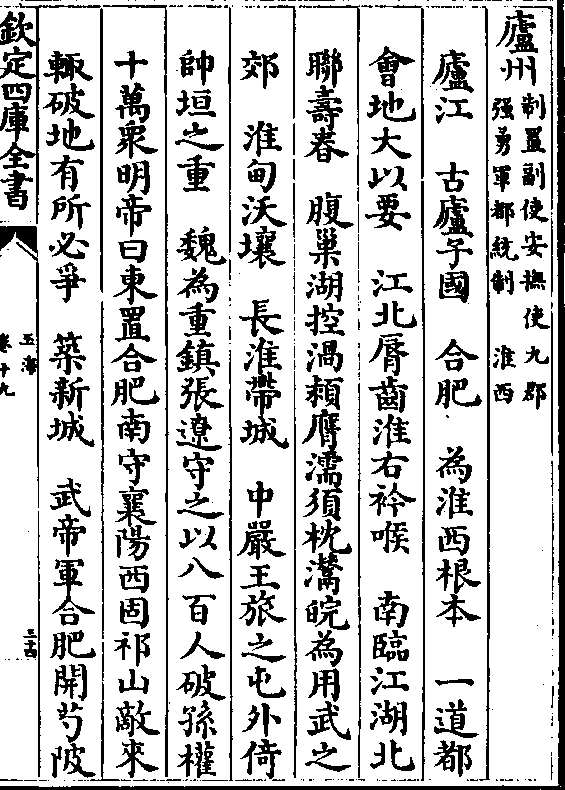 廬州 制置副使安撫使 九郡
强勇軍都統制 淮西
廬江 古廬子國 合肥 為淮西根本 一道都
會地大以要 江北脣齒淮右衿喉 南臨江湖北
聯壽春 腹巢湖控渦潁膺濡須枕灊皖為用武之
郊 淮甸沃壤 長淮帶城 中嚴王旅之屯外倚
帥垣之重 魏為重鎮張遼守之以八百人破孫權
十萬衆明帝曰東置合肥南守襄陽西固祁山敵來
輙破地有所必爭 築新城 武帝軍合肥開芍陂
欽定四庫全書
玉海
卷十九
三十四